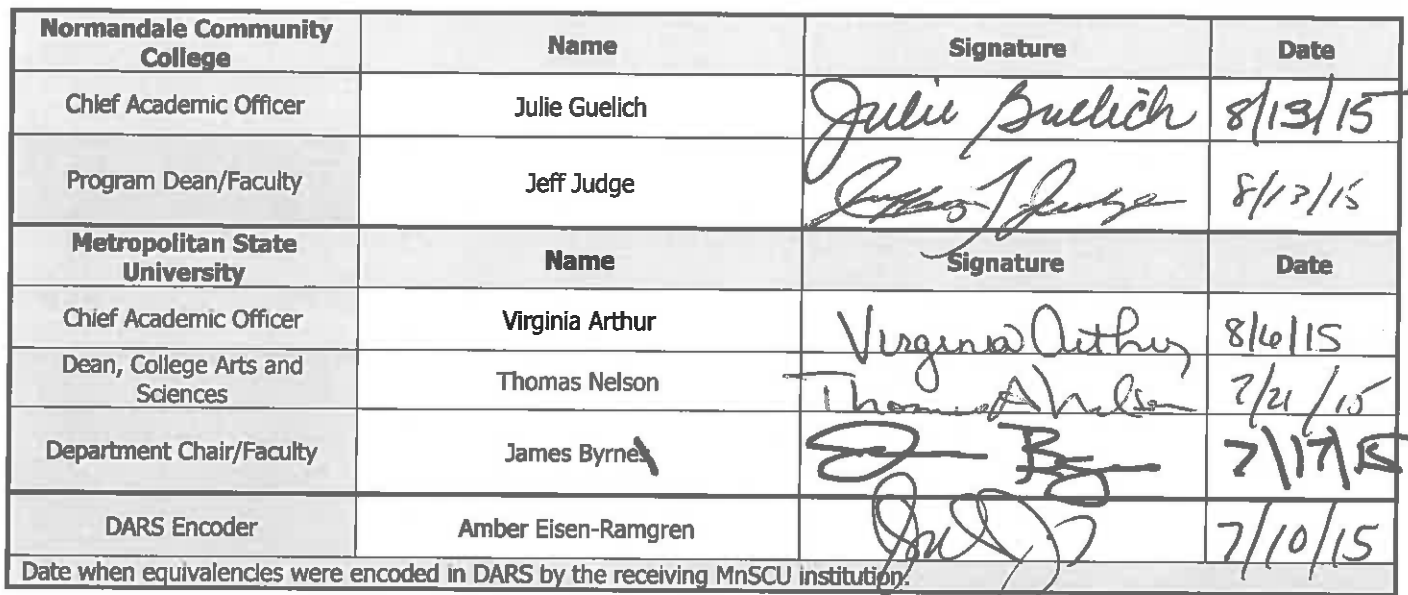 Normandale Community College Name Signature Date
Chief Academic Officer Julie Guelich Julie Guelich 8/13/15
Program Dean/Faculty Jeff Judge Jeffrey J Judge 8/13/15
Metropolitan State University Name Signature Date
Chief Academic Officer Virginia Arthur Virginia Arthur 8/6/15
Dean, College Arts and Sciences Thomas Nelson Thomas A Nelson 7/21/15
Department Chair/Faculty James Byrne 7/17/15
DARS Encoder Amber Eisen-Ramgren 7/10/15
Date when equivalencies were encoded in DARS by the receiving MnSCU institution.